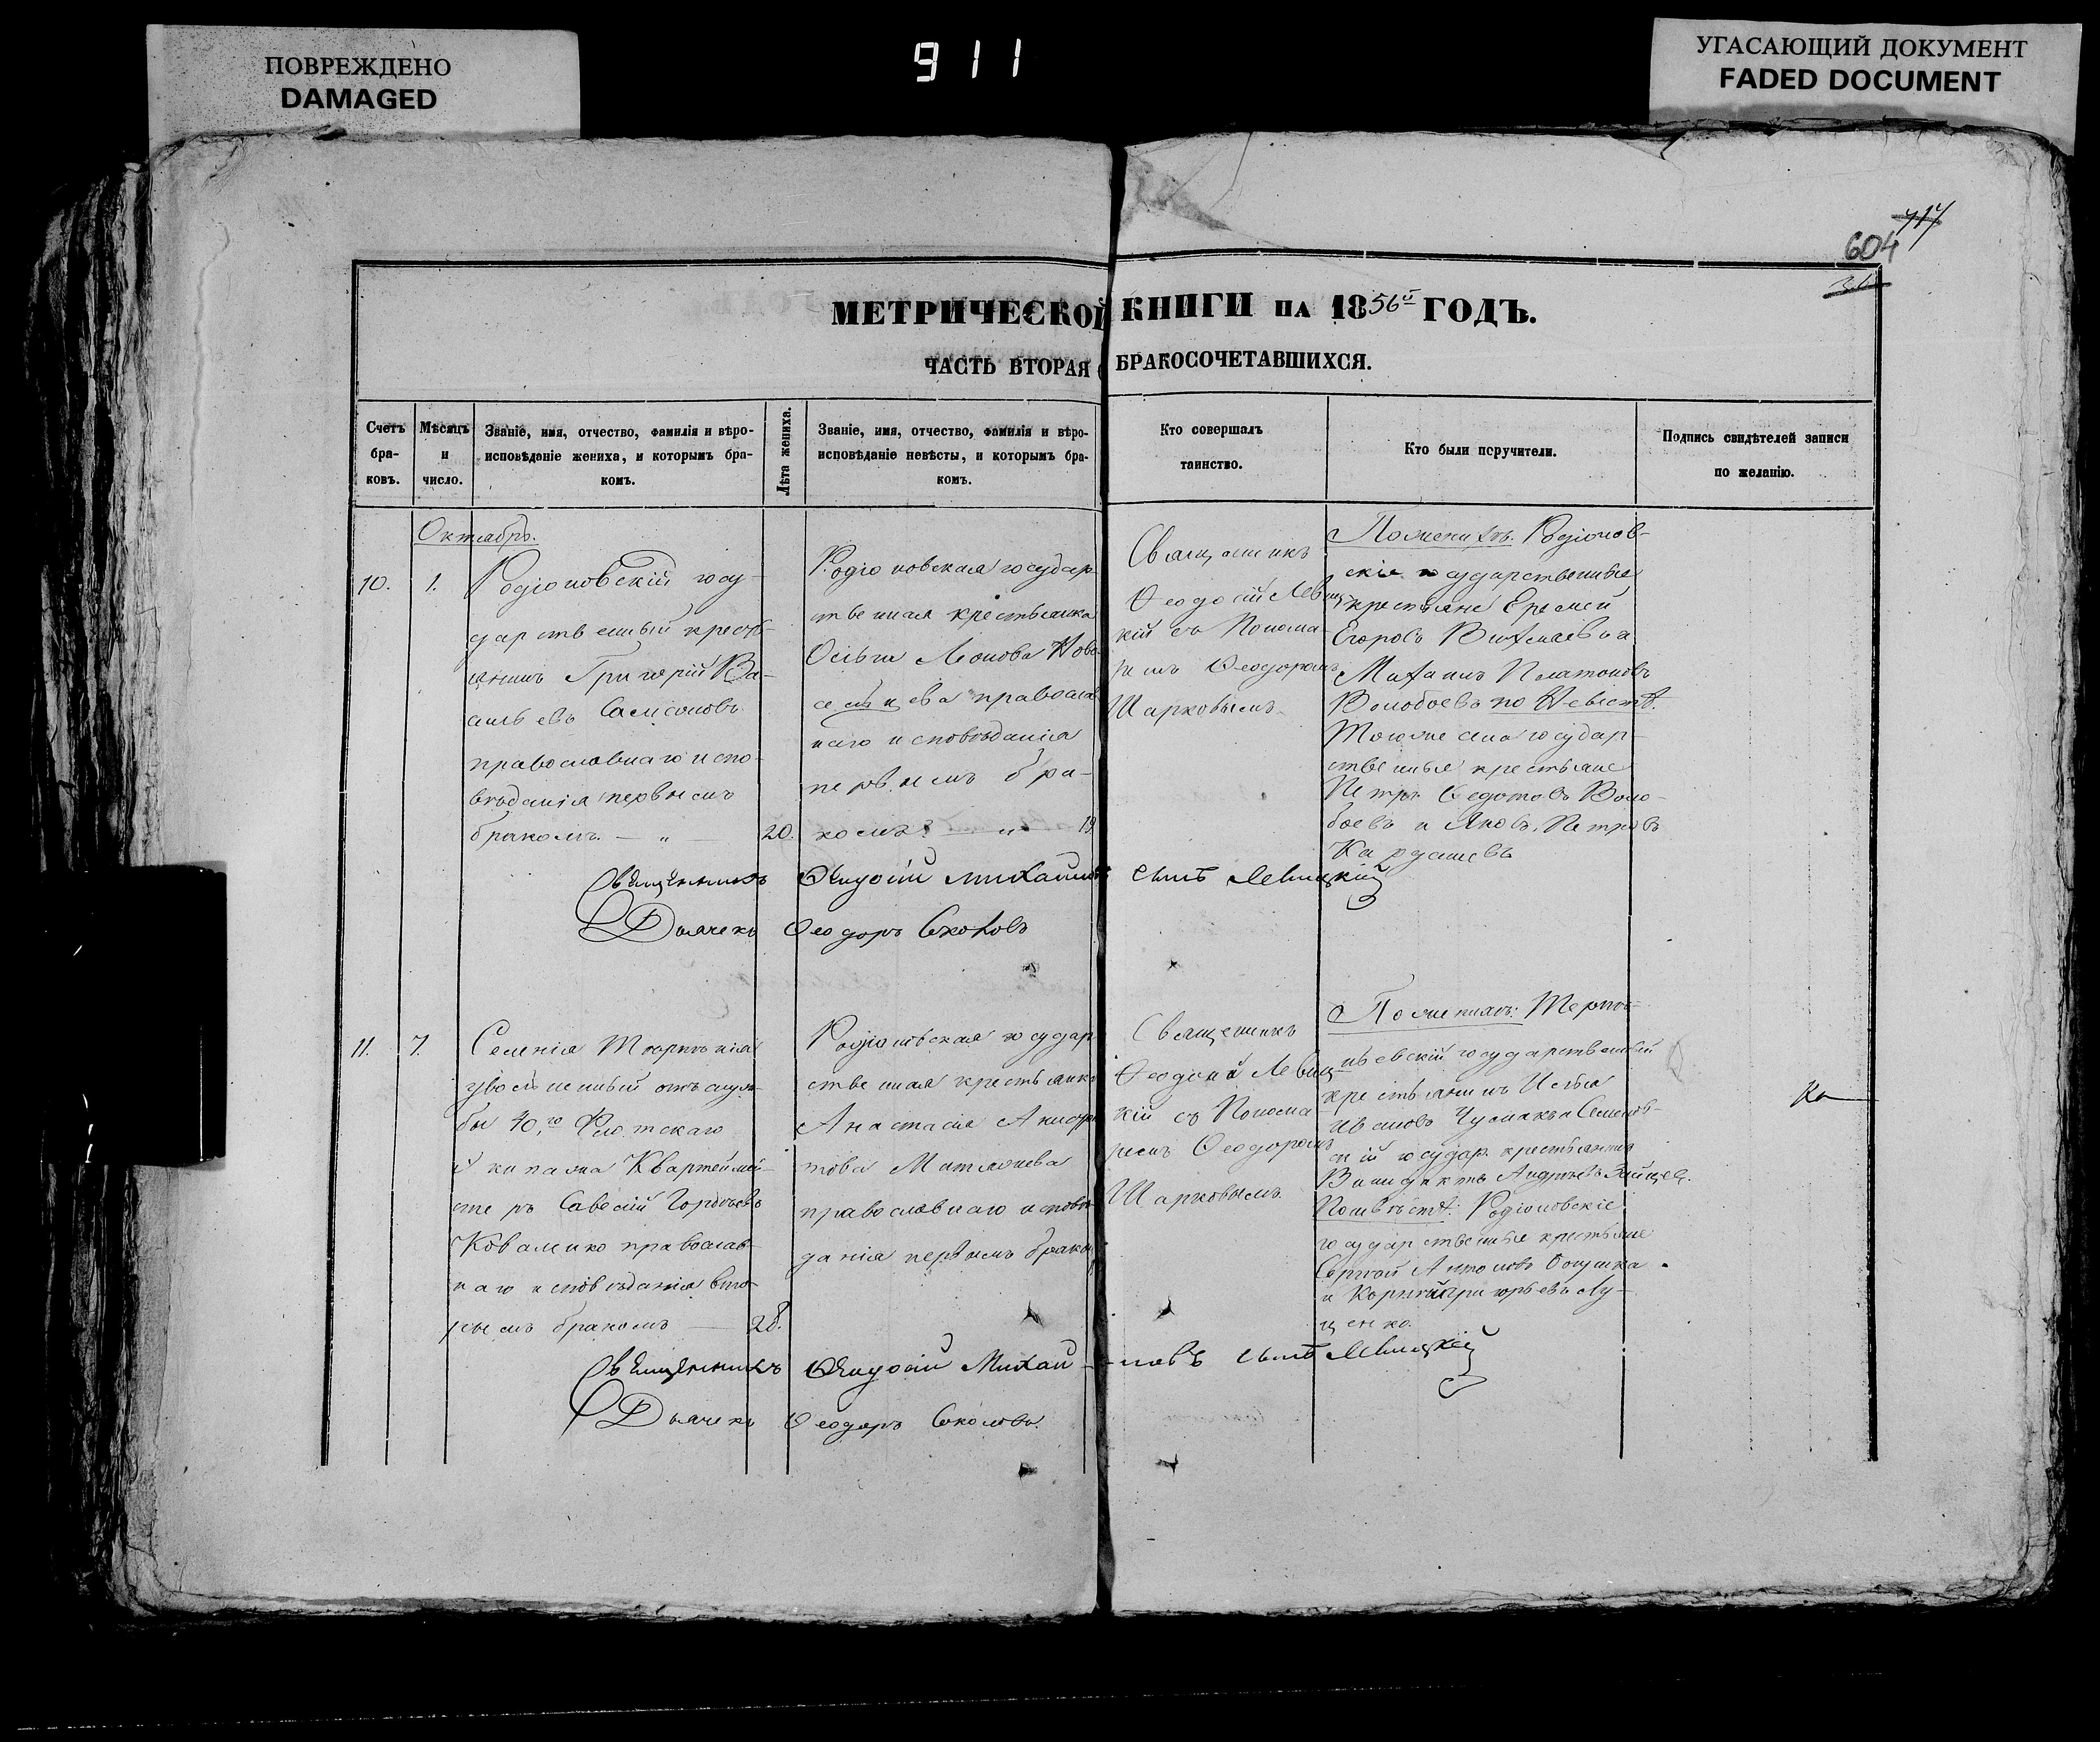 ПОВРЕЖДЕНО
DAMAGED
911
УГАСАЮЩИЙ ДОКУМЕНТ
FADED DOCUMENT
604
МЕТРИЧЕСКОЙ КНИГИ НА 1856й ГОДЪ.
ЧАСТЬ ВТОРАЯ БРАКОСОЧЕТАВШИХСЯ.
Счетъ
бра-
ковъ.
Мѣсяцъ
и
число.
Званіе, имя, отчество, фамилія и вѣро-
исповѣданіе жениха, и которымъ бра-
комъ.
Лѣта жениха.
Званіе, имя, отчество, фамилія и вѣро-
исповѣданіе невѣсты, и которымъ бра-
комъ.
Кто совершалъ
таинство.
Кто были поручители.
Подпись свидѣтелей записи
по желанію.
Октябрь.
10.
1.
Родіоновскій госу-
дарственный кресть-
янинъ Григорій Ва-
сильевъ Самсоновъ
православнаго испо-
вѣданія первымъ
бракомъ. — „ —
20.
Родіоновская государ-
ственная крестьянка
Ольга Леонова Ново-
сельцева православ
наго исповѣданія
первымъ бра-
комъ
19.
Священникъ
Ѳеодосій Левиц-
кій съ Понома-
ремъ Ѳеодоромъ
Шарковымъ
По женихѣ: Родіонов-
скіе государственные
крестьяне Еремей
Егоровъ и
Михаилъ Платоновъ
Волобоевъ по Невѣстѣ.
Того же села государ-
ственные крестьяне
Петръ Ѳедотовъ Воло-
боевъ и Яковъ Петровъ
Кардашевъ
Священникъ Ѳеодосій Михаиловъ сынъ Левицкій
Дьячекъ Ѳеодоръ Соколовъ
11.
7.
Селенія
уволенный отъ служ-
бы 40го Флотскаго
Экипажа Квартейрмей-
стеръ Савелій Гордѣевъ
Коваленко православ-
наго исповѣданія вто-
рымъ бракомъ —
28.
Родіоновская государ
ственная крестьянка
Анастасія
православнаго исповѣ
данія первымъ бракомъ
Священникъ
Ѳеодосій Левиц-
кій съ Понома-
ремъ Ѳеодоромъ
Шарковымъ.
По женихѣ: Терпѣ-
ньевскій государственный
крестьянинъ Илья
Ивановъ Чумакъ и Семенов-
скій государ. крестьянинъ
Андреевъ Зайцев.
По невѣстѣ: Родіоновскіе
государственные крестьяне
Сергѣй Антоновъ
и Корнѣй Григорьевъ Лу-
ценко.
Священникъ Ѳеодосій Михаи-
ловъ сынъ Левицкій
Дьячекъ Ѳеодоръ Соколовъ.